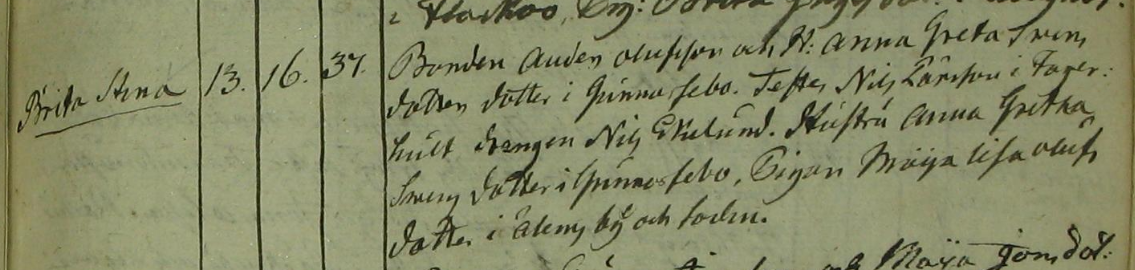 i Flackoo, Pig: Brita
Brita Stina 13. 16. 37. Bonden Anders olufsson och H: Anna Greta Svens
dotters dotter i Gunnarsebo. Testes Nils Larsson i Fager:
hult drengen Nils Ekelund. Hustru Anna Gretha
Svens dotter i Gunnarsebo, Pigan Maija lisa olufs
dotter i ålems by och sockn.
och Maija Jons dot: